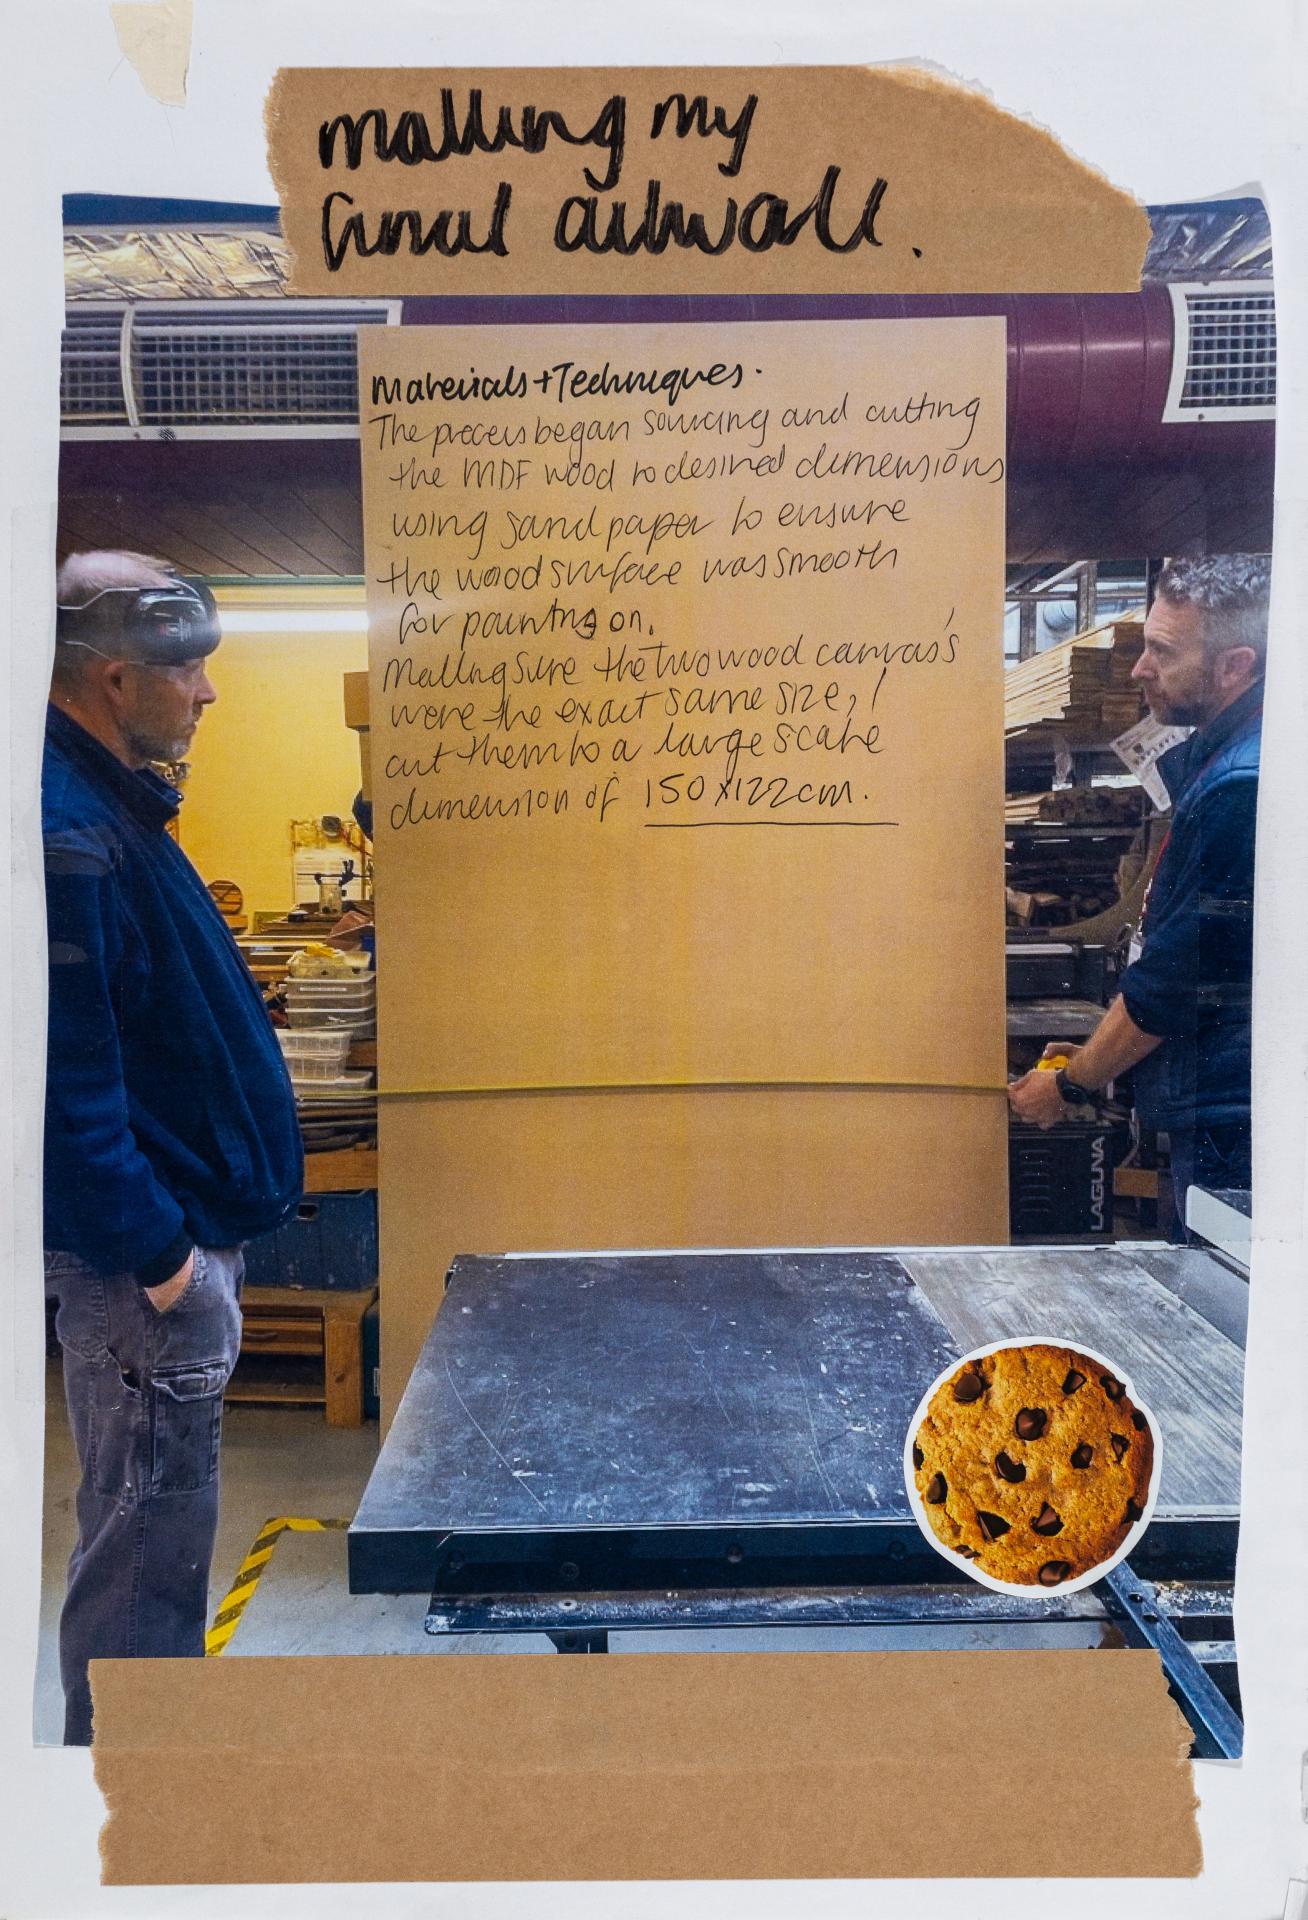 making my
final artwork.
Materials + Techniques.
The process began sourcing and cutting
the MDF wood to desired dimensions
using sand paper to ensure
the wood surface was smooth
for painting on.
Making sure the two wood canvas's
were the exact same size, I
cut them to a large scale
dimension of 150x122cm.
LAGUNA